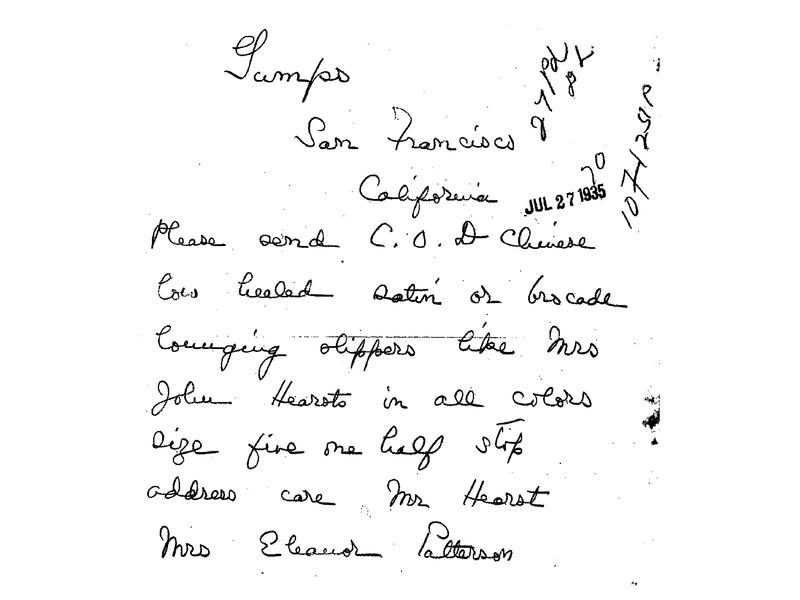 Gumps
San Francisco
California
27 Pd
82
JUL 27 1935
Please send C.O.D Chinese
low healed satin or brocade
lounging slippers like Mrs
John Hearsts in all colors
size five one half stop
address care Mr Hearst
Mrs Eleanor Patterson